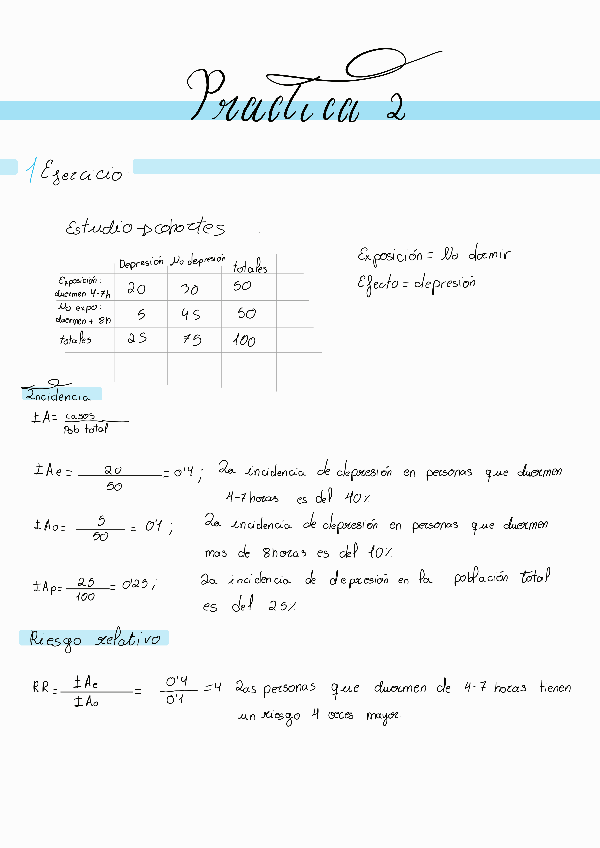 Practica 2
1 Ejercicio
Estudio → cohortes
Exposición = No dormir
Efecto = depresión
Depresión No depresión totales
Exposición: duermen 4-7h 20 30 50
No expo: duermen + 8h 5 45 50
totales 25 75 100
Incidencia
IA = casos / Pob total
IAe = 20 / 50 = 0'4; La incidencia de depresión en personas que duermen
4-7 horas es del 40%
IAo = 5 / 50 = 0'1; La incidencia de depresión en personas que duermen
mas de 8 horas es del 10%
IAp = 25 / 100 = 0'25; La incidencia de depresión en la población total
es del 25%
Riesgo relativo
RR = IAe / IAo = 0'4 / 0'1 = 4 Las personas que duermen de 4-7 horas tienen
un riesgo 4 veces mayor